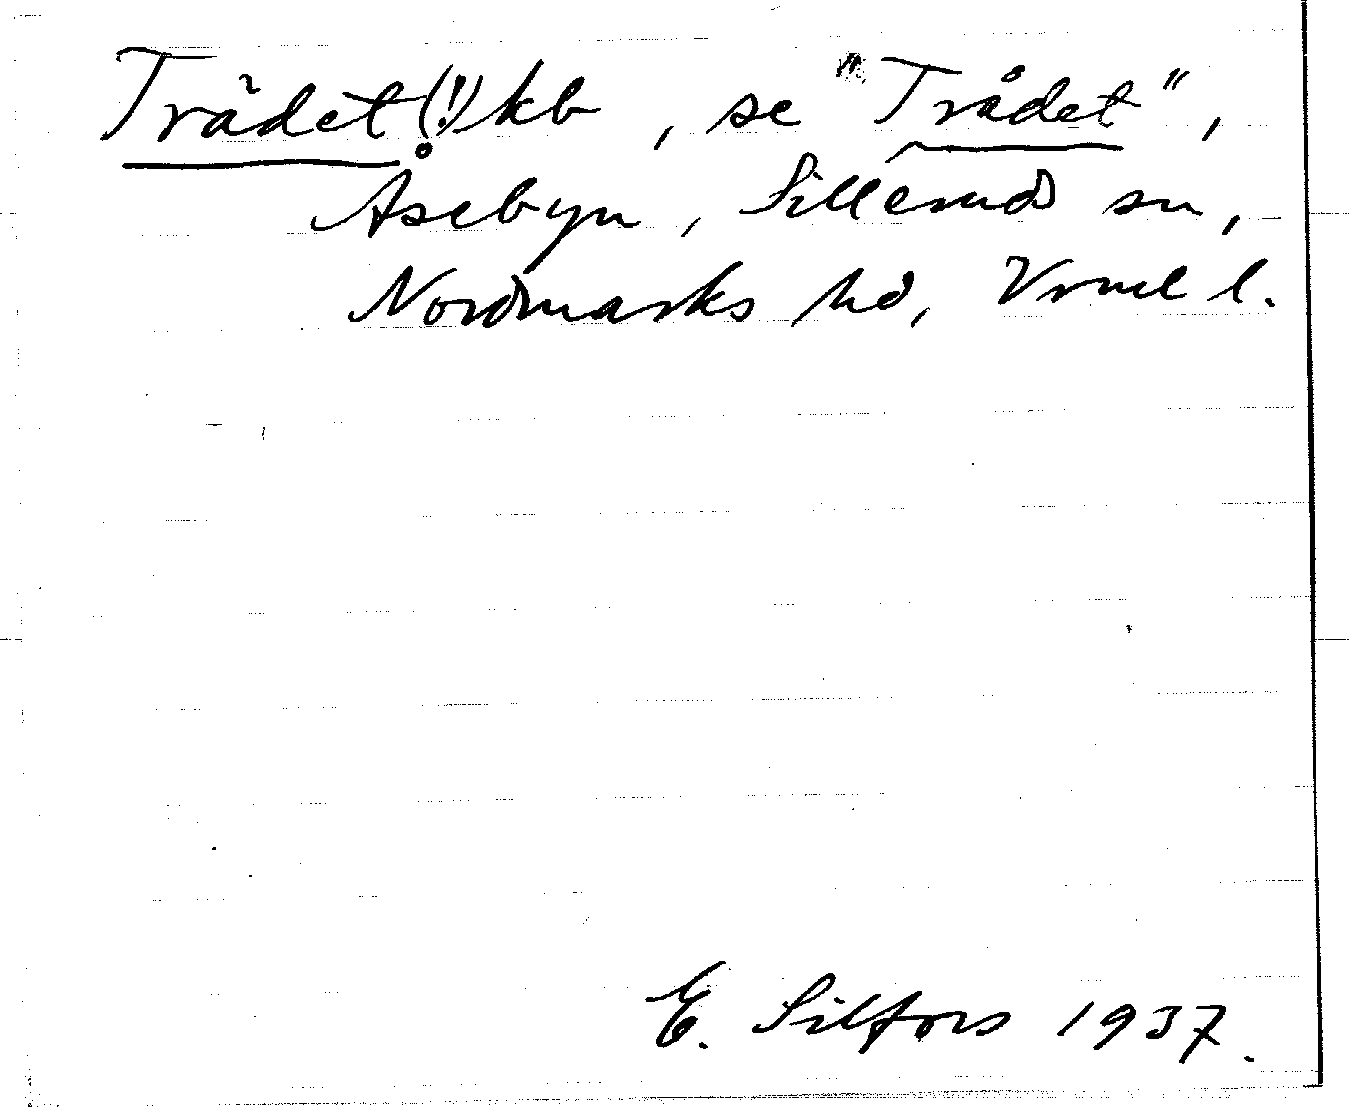 Trädet (!) kb, se "Trådet",
Åsebyn, Sillerud sn,
Nordmarks hd, Vrml l.
E. Silfors 1937.